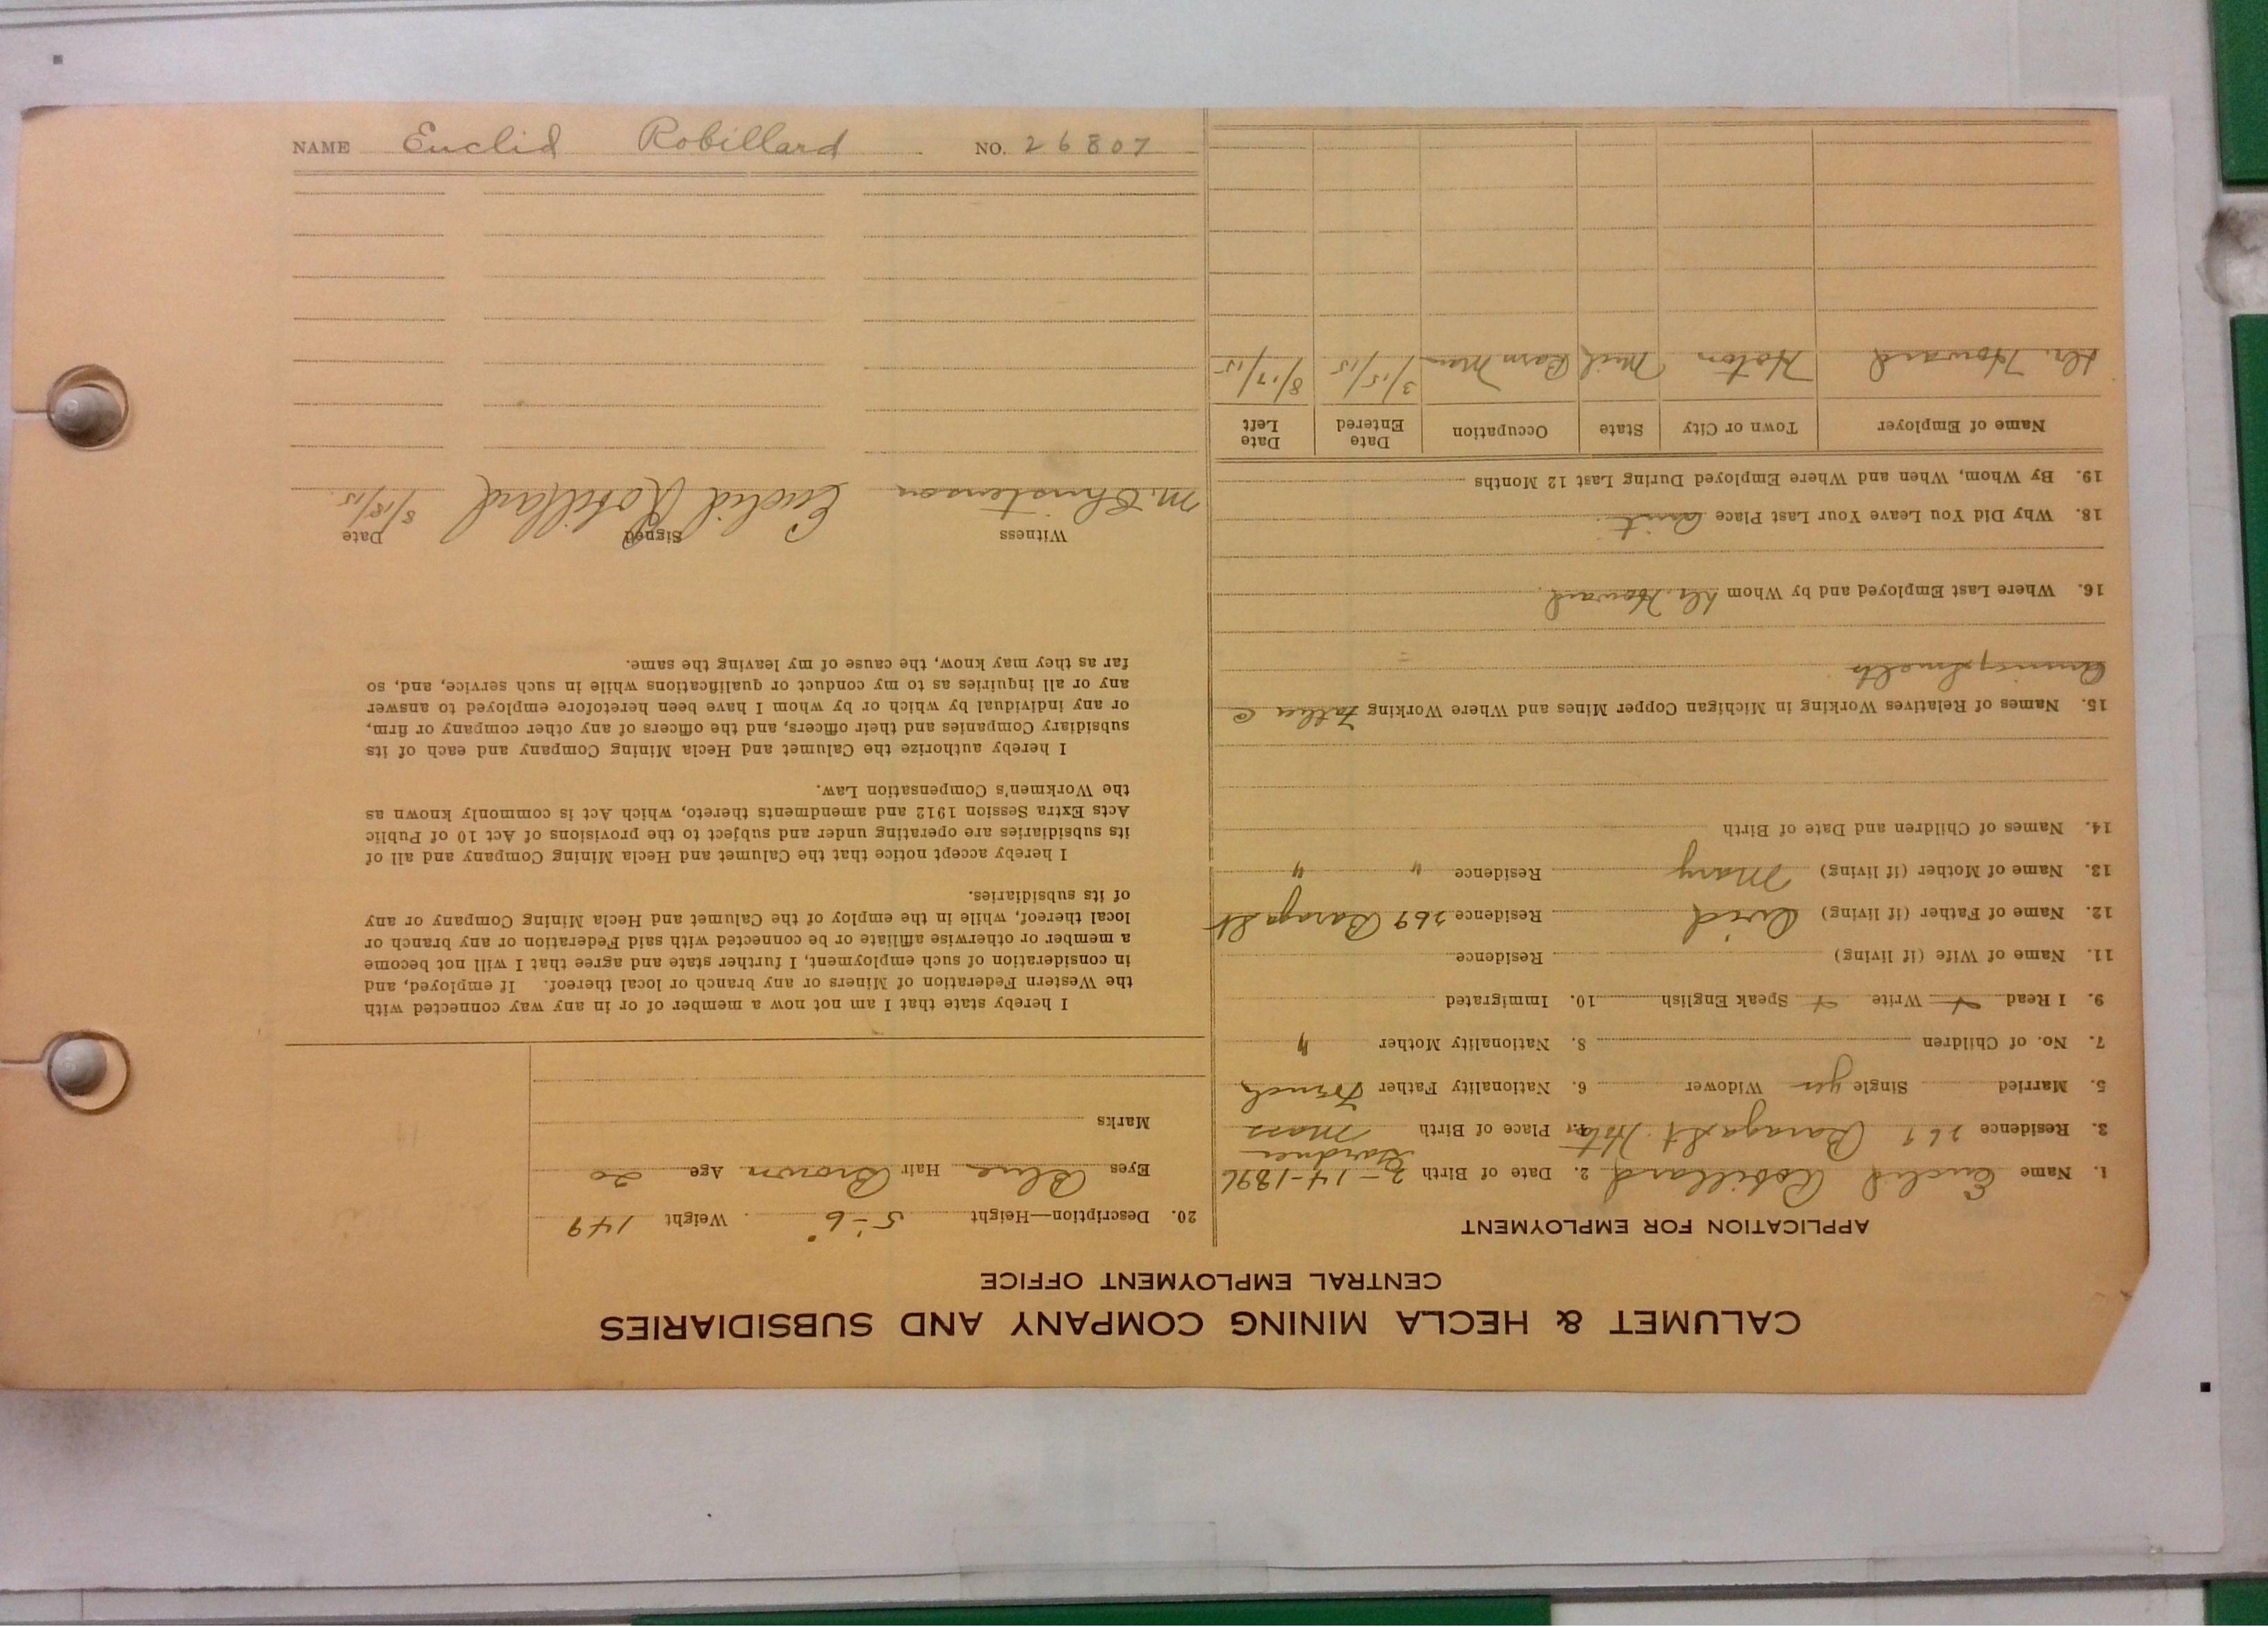 NAME Euclid Robillard NO. 26807
CALUMET & HECLA MINING COMPANY AND SUBSIDIARIES
CENTRAL EMPLOYMENT OFFICE
APPLICATION FOR EMPLOYMENT
1. Name Euclid Robillard 2. Date of Birth 3-14-1896
3. Residence 269 Baraga St Hoton 4. Place of Birth Gardner Mass
5. Married Single yes Widower 6. Nationality Father French
7. No. of Children 8. Nationality Mother "
9. I Read Write Speak English 10. Immigrated
11. Name of Wife (if living) Residence
12. Name of Father (if living) Ovid Residence 269 Baraga St
13. Name of Mother (if living) Mary Residence " "
14. Names of Children and Date of Birth
15. Names of Relatives Working in Michigan Copper Mines and Where Working Father @
Quincy Smelts
16. Where Last Employed and by Whom Dr. Howard.
18. Why Did You Leave Your Last Place Quit.
19. By Whom, When and Where Employed During Last 12 Months
Name of Employer Town or City State Occupation Date Entered Date Left
Dr. Howard Hoton Mich Barn Man 3/15/15 8/17/15
20. Description—Height 5'-6" Weight 149
Eyes Blue Hair Brown Age 20
Marks
I hereby state that I am not now a member of or in any way connected with
the Western Federation of Miners or any branch or local thereof. If employed, and
in consideration of such employment, I further state and agree that I will not become
a member or otherwise affiliate or be connected with said Federation or any branch or
local thereof, while in the employ of the Calumet and Hecla Mining Company or any
of its subsidiaries.
I hereby accept notice that the Calumet and Hecla Mining Company and all of
its subsidiaries are operating under and subject to the provisions of Act 10 of Public
Acts Extra Session 1912 and amendments thereto, which Act is commonly known as
the Workmen's Compensation Law.
I hereby authorize the Calumet and Hecla Mining Company and each of its
subsidiary Companies and their officers, and the officers of any other company or firm,
or any individual by which or by whom I have been heretofore employed to answer
any or all inquiries as to my conduct or qualifications while in such service, and, so
far as they may know, the cause of my leaving the same.
Witness Signed Date
M. Christenson Euclid Robillard 8/18/15